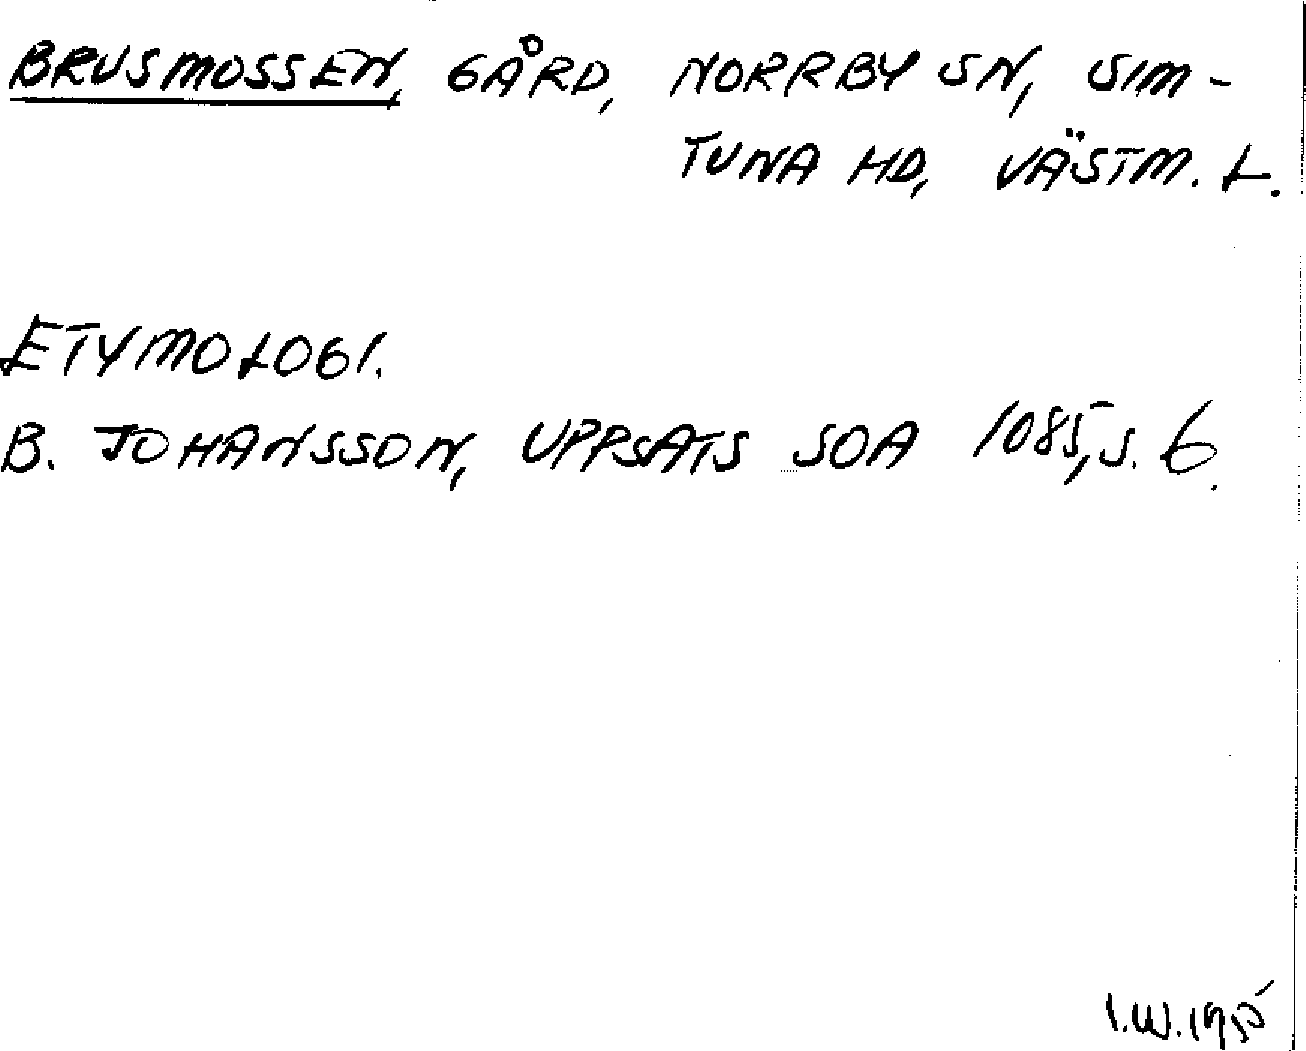 BRUSMOSSEN, GÅRD, NORRBY SN, SIM-
TUNA HD, VÄSTM. L.
ETYMOLOGI.
B. JOHANSSON, UPPSATS SOA 1085, S. 6.
I.W.